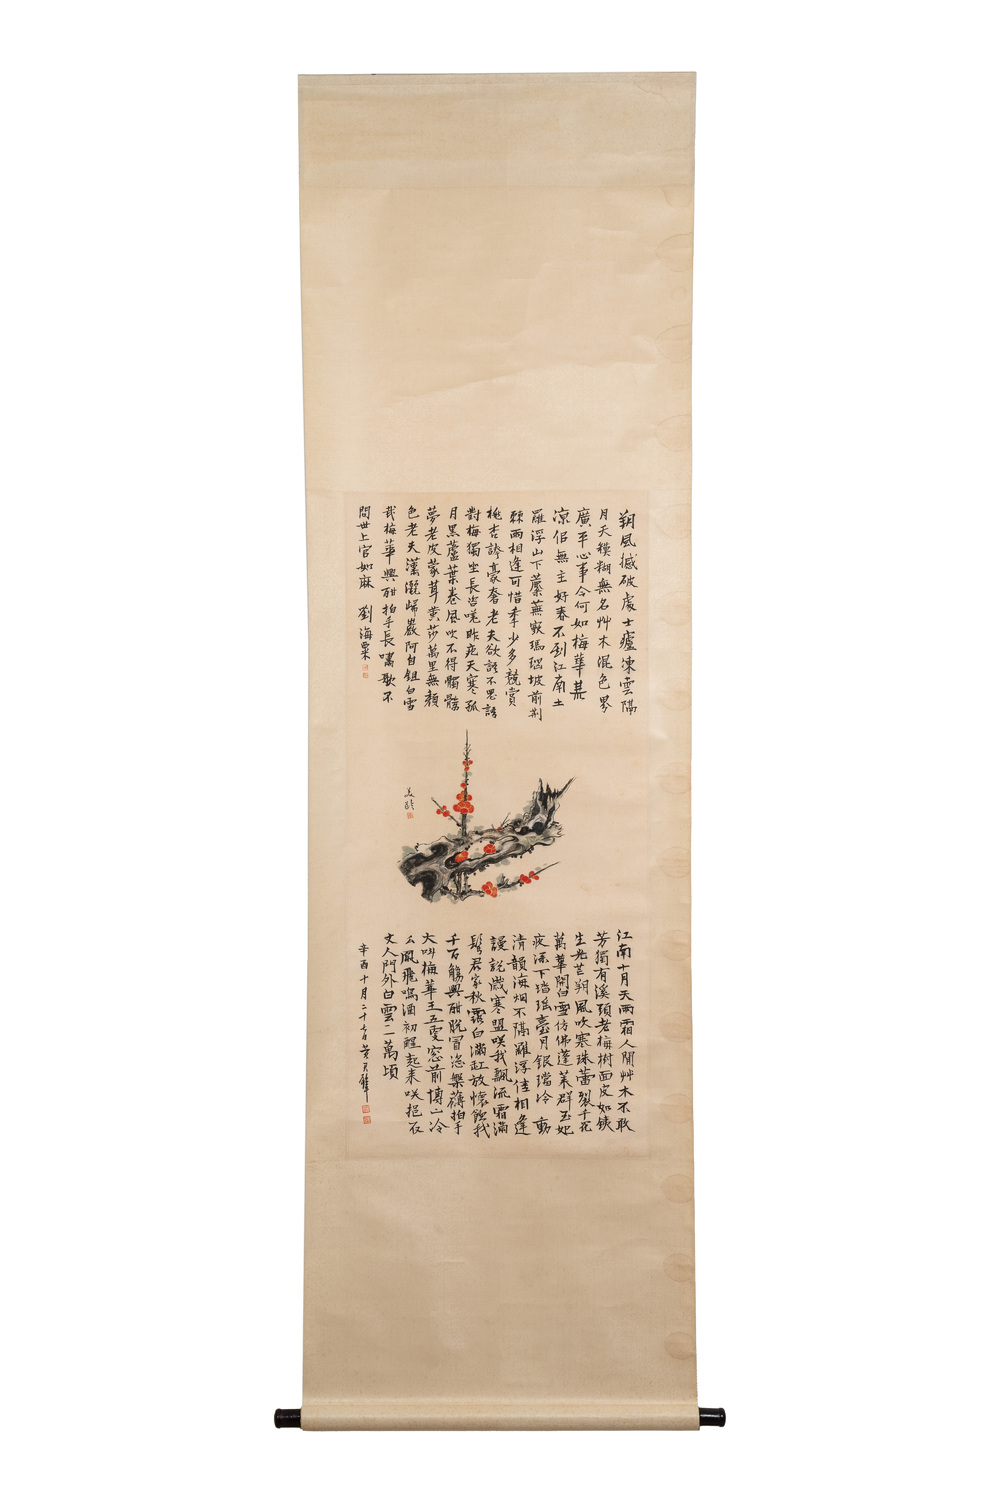 朔風撼破處士廬凍雲隔
月天模糊無名艸木混色界
廣平心事今何如梅華
涼佀無主好春不到江南土
羅浮山下蘪蕪寂瑪瑙坡前荆
棘雨相逢可惜季少多競賞
桃杏誇豪奢老夫欲語不思語
對梅獨坐長咨嗟昨宛天寒孤
月黑蘆葉卷風吹不得髑髏
夢老皮蒙茸黄莎萬里無顏
色老夫瀟灑歸巖阿自鉏白雪
栽梅華興酣拍手長嘯歌不
問世上官如麻 劉海粟
美齡
江南十月天雨霜人間艸木不敢
芳獨有溪頭老梅樹面皮如鐵
生光芒朔風吹寒珠蕾裂千花
萬華開白雪仿佛蓬萊群玉妃
夜深下踏瑤臺月銀璫泠動
清韻海烟不隔羅浮佳相逢
謾說歲寒盟咲我飄流霜滿
鬢君家秋露白滿缸放懷飲我
千百觴興酣脫冒恣槃薄拍手
大叫梅華王五更窓前博山冷
么鳳飛鳴酒初醒起來咲挹石
丈人門外白雲二萬頃
辛酉十月二十